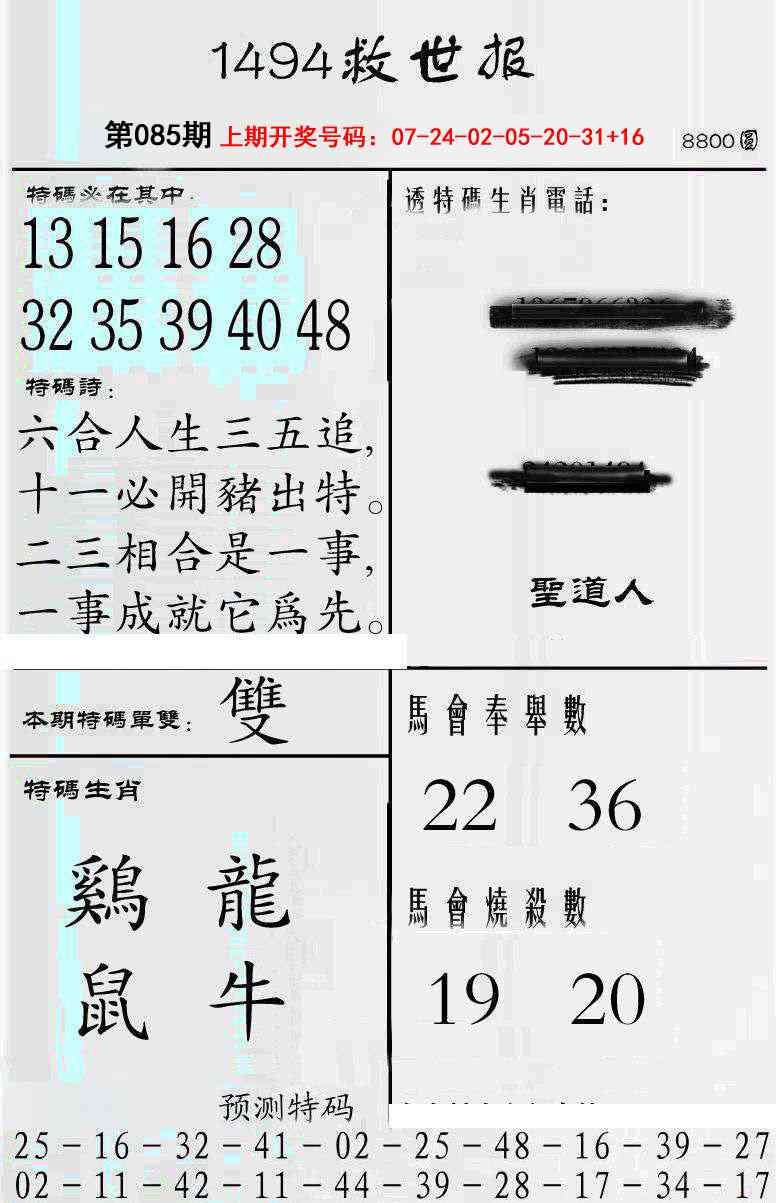 1494救世报
第085期 上期开奖号码：07-24-02-05-20-31+16 8800圓
特碼必在其中.
13 15 16 28
32 35 39 40 48
特碼詩：
六合人生三五追，
十一必開豬出特。
二三相合是一事，
一事成就它爲先。
透特碼生肖電話：
聖道人
本期特碼單雙： 雙
特碼生肖
鷄 龍
鼠 牛
馬會奉舉數
22 36
馬會燒殺數
19 20
预测特码
25－16－32－41－02－25－48－16－39－27
02－11－42－11－44－39－28－17－34－17